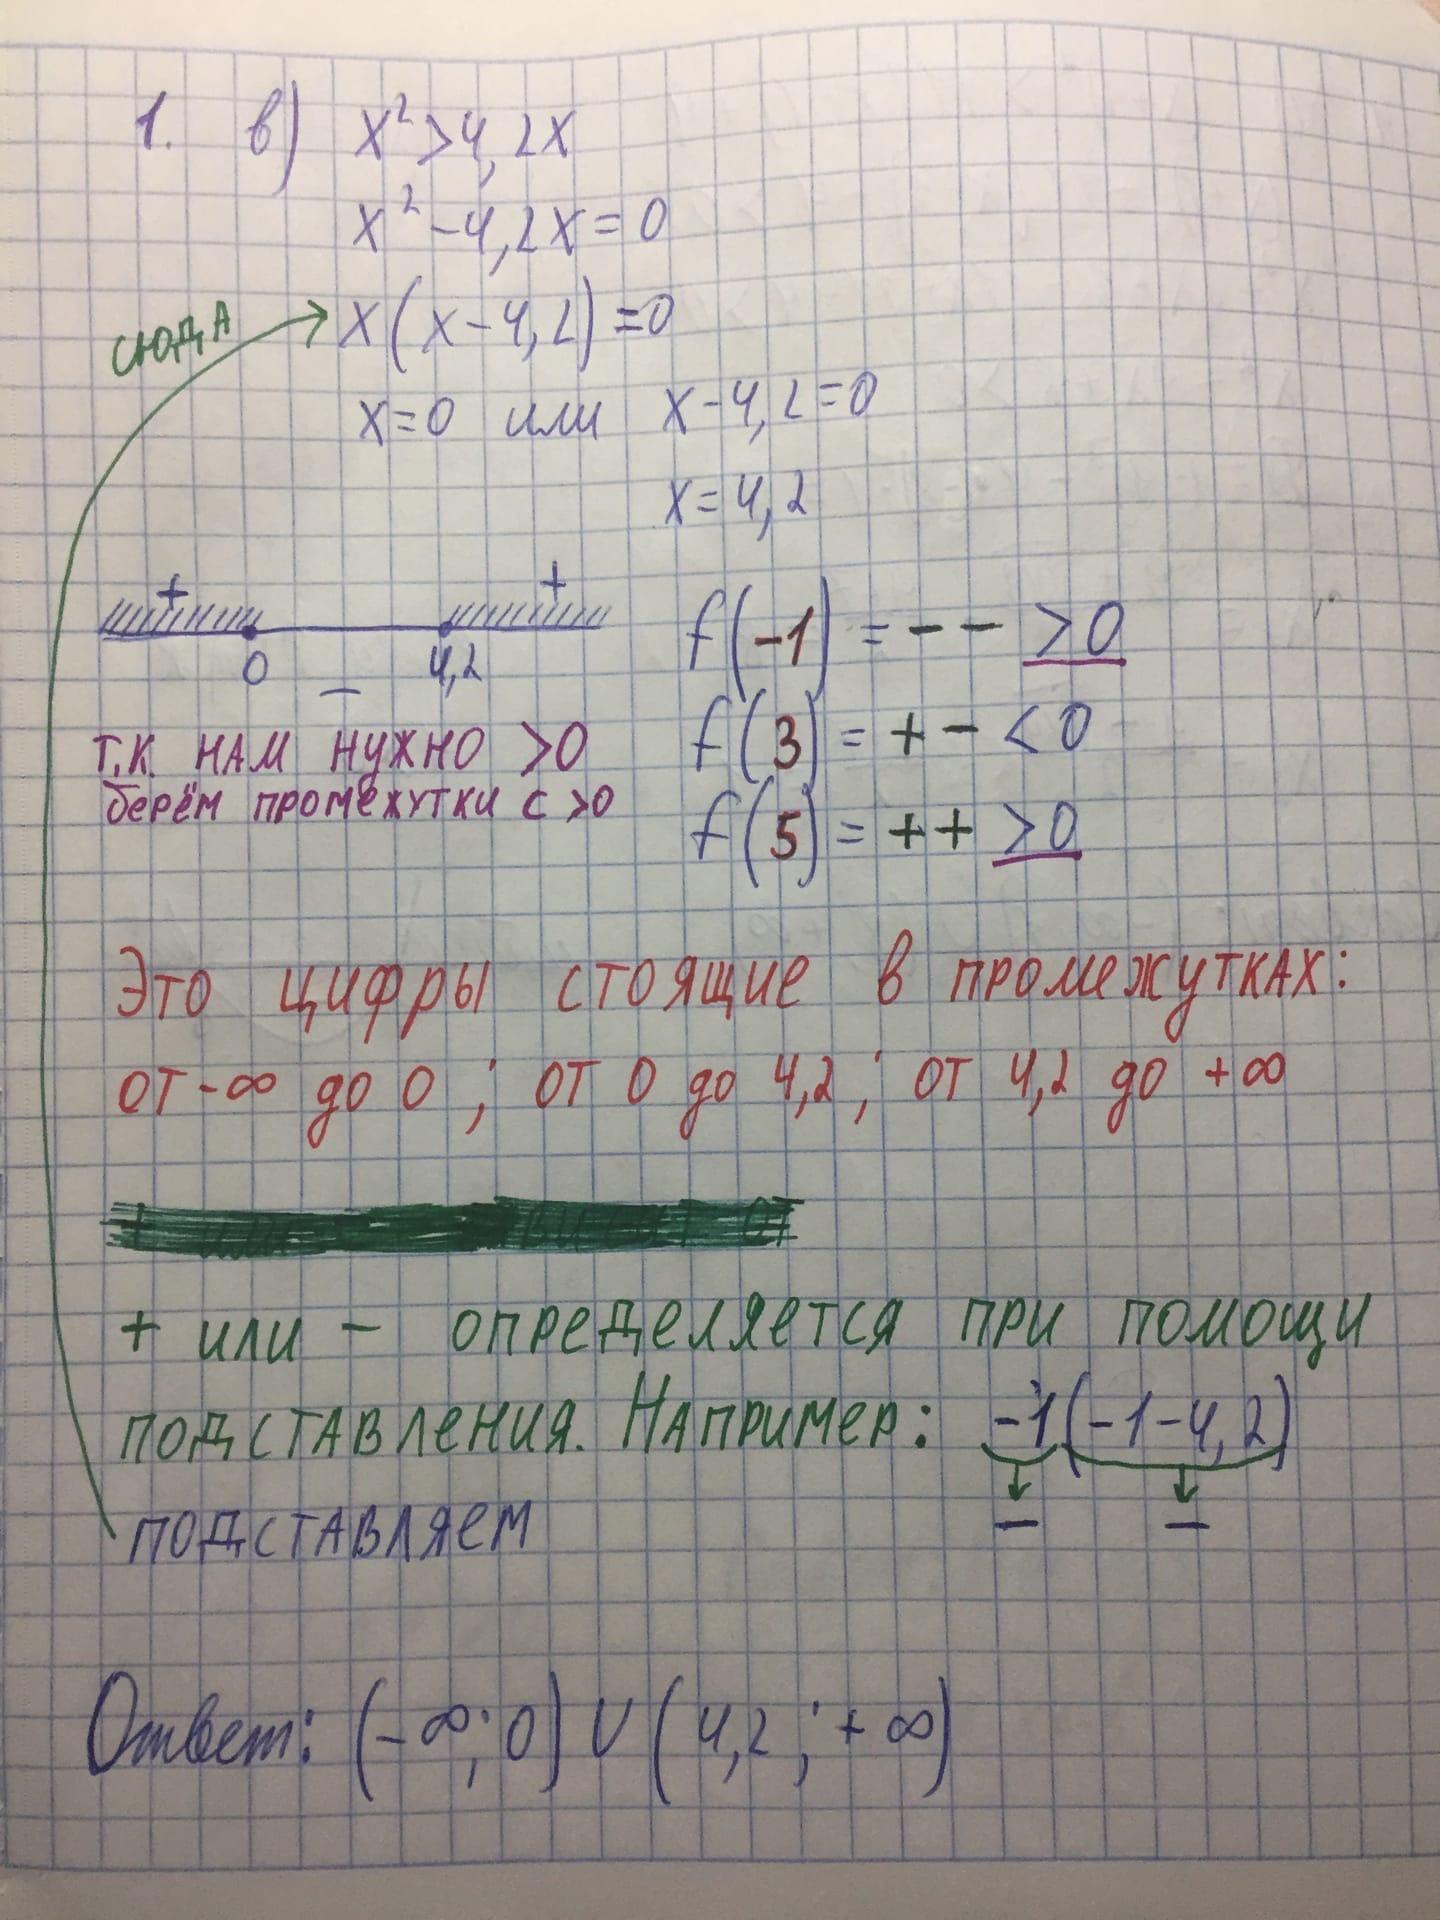 1. в) x² > 4,2x
x² - 4,2x = 0
сюда x(x - 4,2) = 0
x = 0 или x - 4,2 = 0
x = 4,2
+ +
0 4,2
-
f(-1) = - - > 0
f(3) = + - < 0
f(5) = + + > 0
т.к. нам нужно > 0
берём промежутки с > 0
Это цифры стоящие в промежутках:
от -∞ до 0 ; от 0 до 4,2 ; от 4,2 до +∞
+ или - определяется при помощи
подставления. Например: -1(-1-4,2)
подставляем - -
Ответ: (-∞; 0) ∪ (4,2 ; +∞)